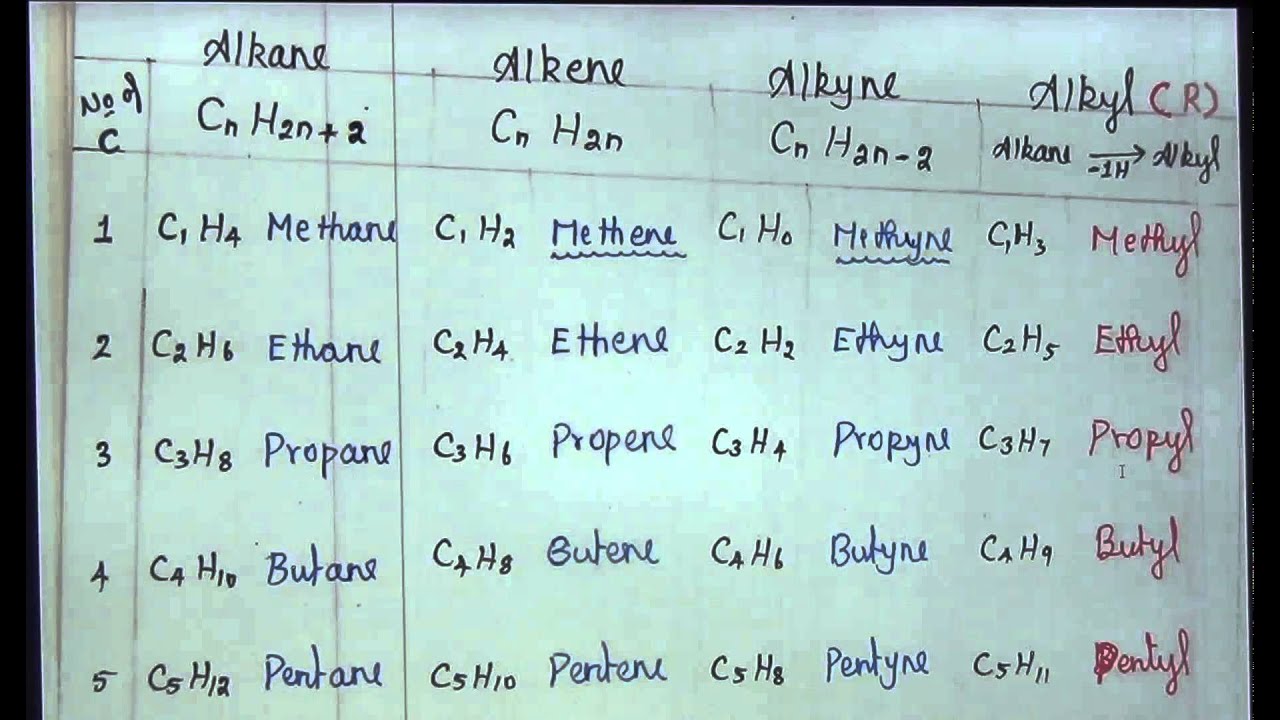 Alkane Alkene Alkyne Alkyl (R)
No of C CnH2n+2 CnH2n CnH2n-2 Alkane -1H→ Alkyl
1 C1H4 Methane C1H2 Methene C1H0 Methyne C1H3 Methyl
2 C2H6 Ethane C2H4 Ethene C2H2 Ethyne C2H5 Ethyl
3 C3H8 Propane C3H6 Propene C3H4 Propyne C3H7 Propyl
4 C4H10 Butane C4H8 Butene C4H6 Butyne C4H9 Butyl
5 C5H12 Pentane C5H10 Pentene C5H8 Pentyne C5H11 Pentyl